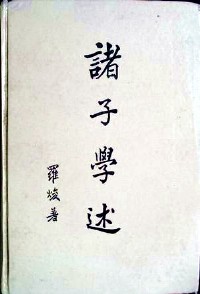 諸子學述
羅焌著